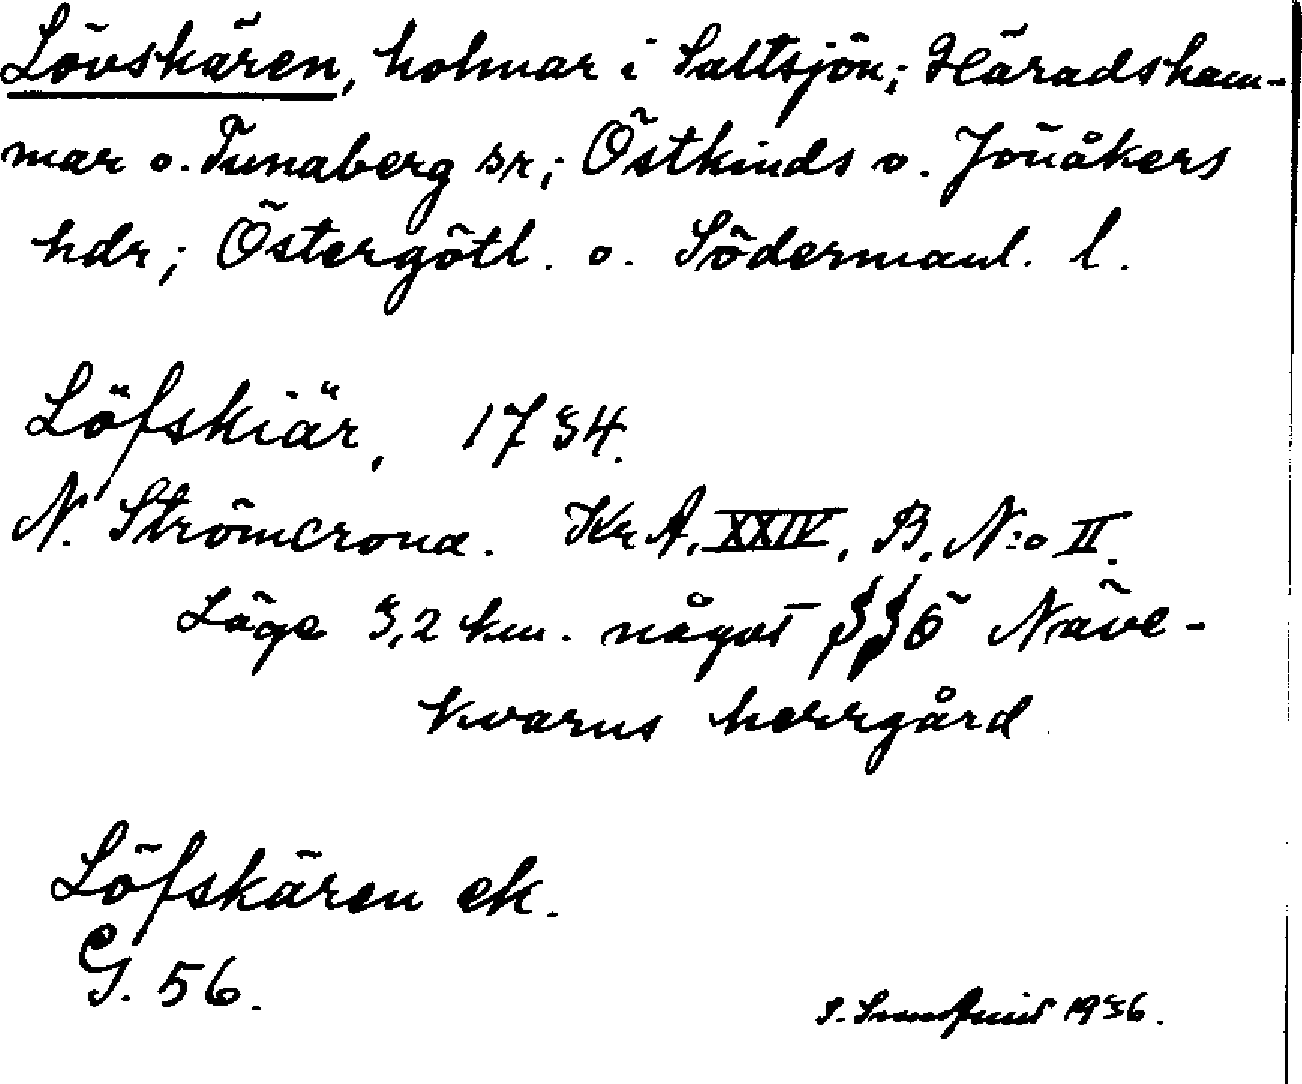 Lövskären, holmar i Saltsjön; Häradsham-
mar o. Tunaberg sr; Östkinds o. Jönåkers
hdr; Östergötl. o. Södermanl. l.
Löfskiär, 1734.
N. Strömcrona. Kr. A. XXIV, B. N:o II.
Läge 3,2 km. något SSÖ Näve-
kvarns herrgård
Löfskären ek.
G. 56.
1936.